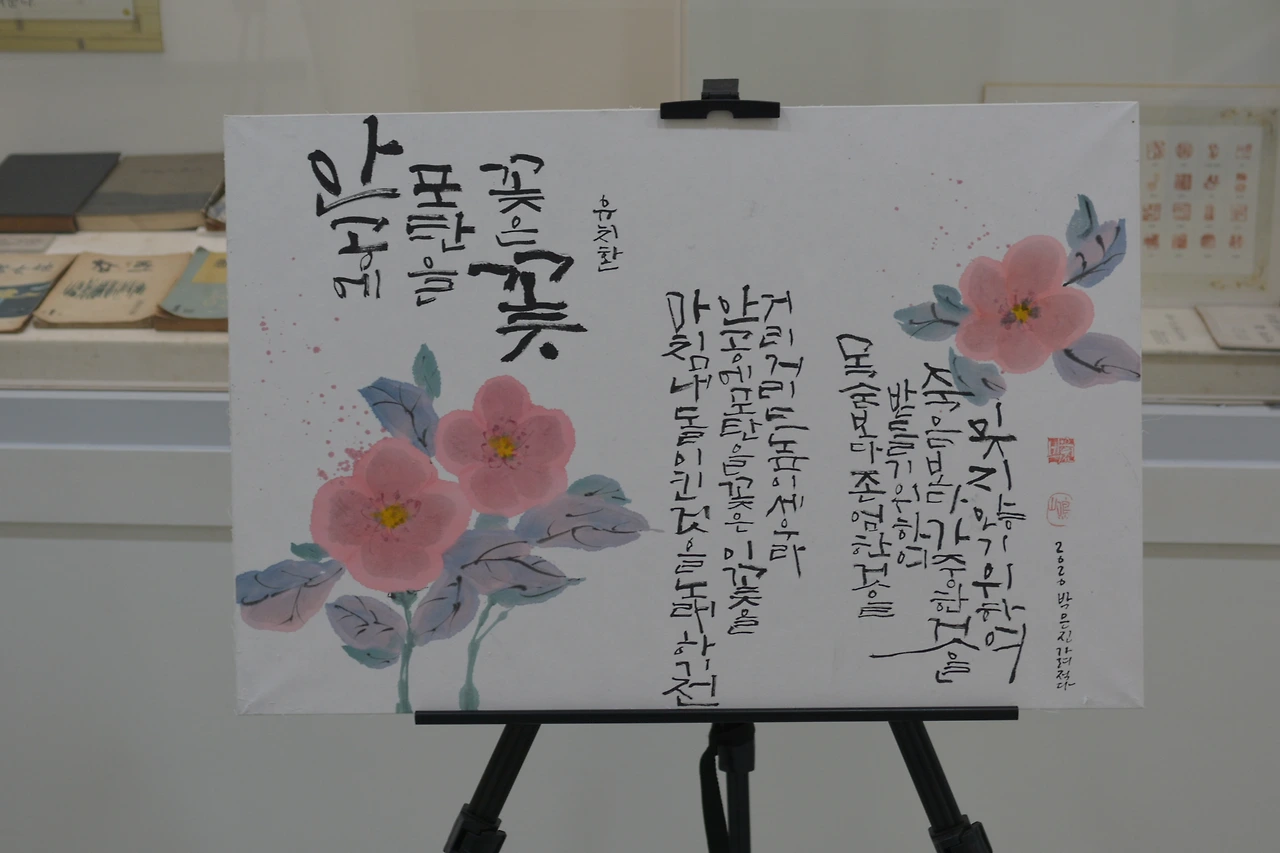 안공에
포탄을
꽂은 꽃
유치환
마침내 돌이킨 것을
안공에 포탄을 꽂은 이 꽃을
거리거리 드높이 세우라
목숨보다 존엄한 것을
받들기 위하여
죽음보다 가증한 것을
잊지 않기 위하여
2020 박은진 가려적다